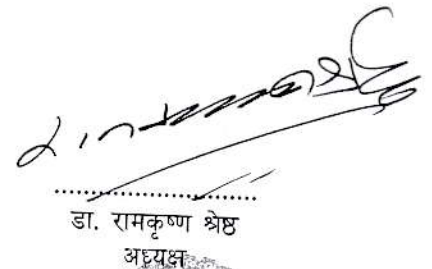 डा. रामकृष्ण श्रेष्ठ
अध्यक्ष